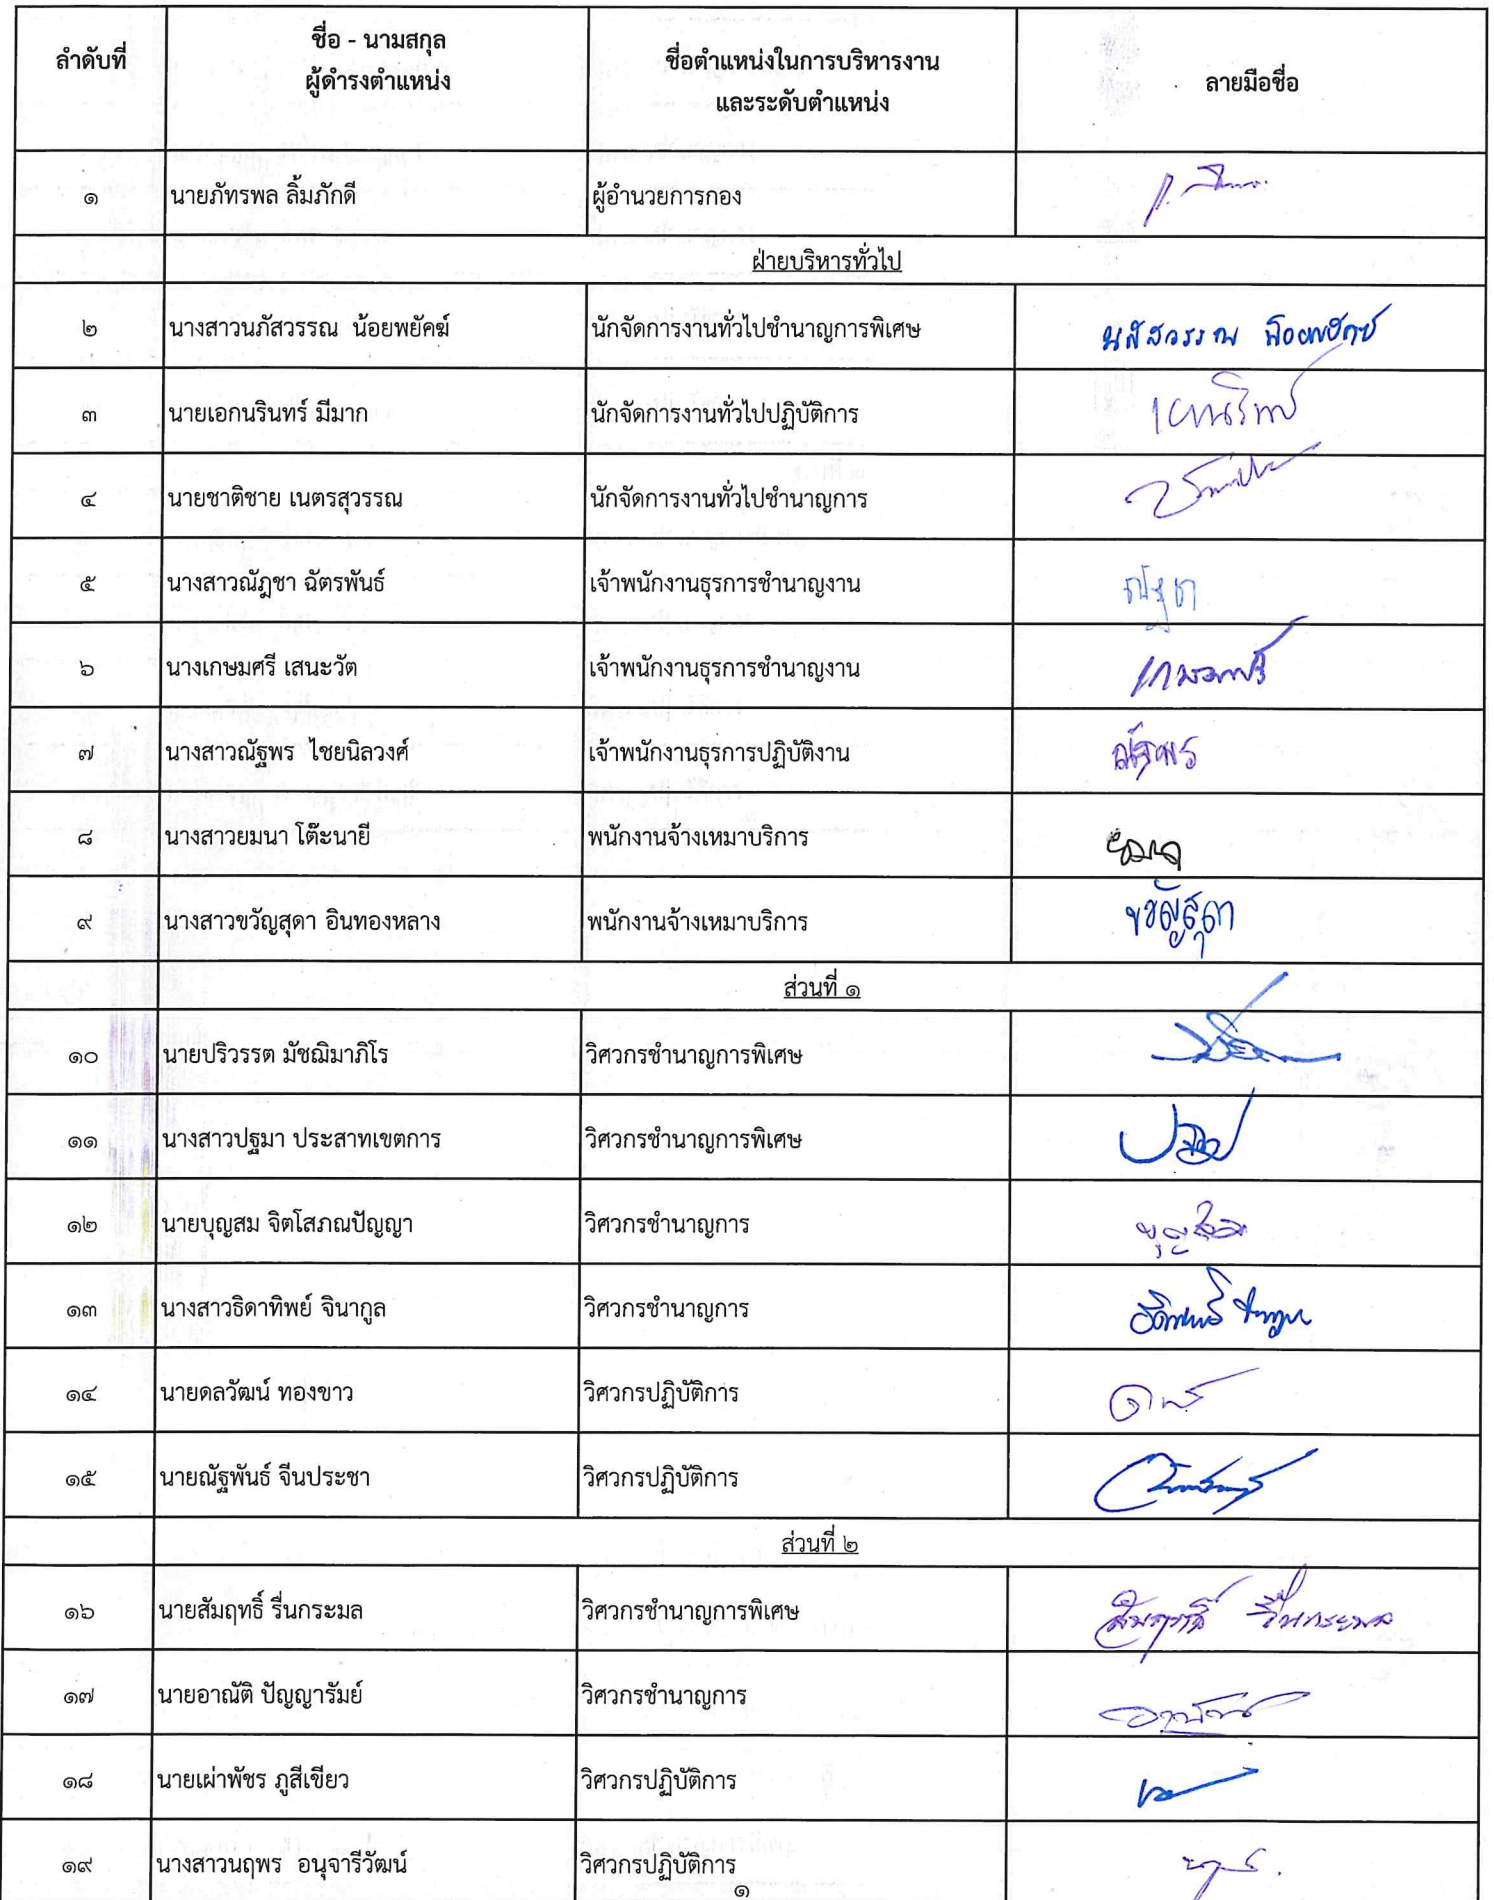 ลำดับที่
ชื่อ - นามสกุล
ผู้ดำรงตำแหน่ง
ชื่อตำแหน่งในการบริหารงาน
และระดับตำแหน่ง
ลายมือชื่อ
๑ นายภัทรพล ลิ้มภักดี ผู้อำนวยการกอง
ฝ่ายบริหารทั่วไป
๒ นางสาวนภัสวรรณ น้อยพยัคฆ์ นักจัดการงานทั่วไปชำนาญการพิเศษ นภัสวรรณ น้อยพยัคฆ์
๓ นายเอกนรินทร์ มีมาก นักจัดการงานทั่วไปปฏิบัติการ
๔ นายชาติชาย เนตรสุวรรณ นักจัดการงานทั่วไปชำนาญการ
๕ นางสาวณัฎชา ฉัตรพันธ์ เจ้าพนักงานธุรการชำนาญงาน ณัฎชา
๖ นางเกษมศรี เสนะวัต เจ้าพนักงานธุรการชำนาญงาน เกษมศรี
๗ นางสาวณัฐพร ไชยนิลวงศ์ เจ้าพนักงานธุรการปฏิบัติงาน ณัฐพร
๘ นางสาวยมนา โต๊ะนายี พนักงานจ้างเหมาบริการ ยมนา
๙ นางสาวขวัญสุดา อินทองหลาง พนักงานจ้างเหมาบริการ ขวัญสุดา
ส่วนที่ ๑
๑๐ นายปริวรรต มัชฌิมาภิโร วิศวกรชำนาญการพิเศษ
๑๑ นางสาวปฐมา ประสาทเขตการ วิศวกรชำนาญการพิเศษ
๑๒ นายบุญสม จิตโสภณปัญญา วิศวกรชำนาญการ บุญสม
๑๓ นางสาวธิดาทิพย์ จินากูล วิศวกรชำนาญการ ธิดาทิพย์ จินากูล
๑๔ นายดลวัฒน์ ทองขาว วิศวกรปฏิบัติการ
๑๕ นายณัฐพันธ์ จีนประชา วิศวกรปฏิบัติการ
ส่วนที่ ๒
๑๖ นายสัมฤทธิ์ รื่นกระมล วิศวกรชำนาญการพิเศษ สัมฤทธิ์ รื่นกระมล
๑๗ นายอาณัติ ปัญญารัมย์ วิศวกรชำนาญการ อาณัติ
๑๘ นายเผ่าพัชร ภูสีเขียว วิศวกรปฏิบัติการ
๑๙ นางสาวนฤพร อนุจารีวัฒน์ วิศวกรปฏิบัติการ
๑